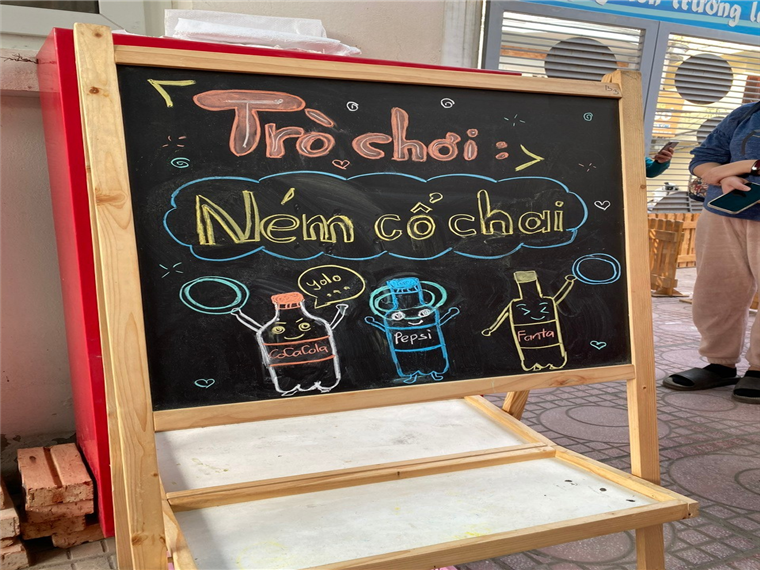 Trò chơi:
Ném cổ chai
yolo
...
CoCaCola
Pepsi
Fanta